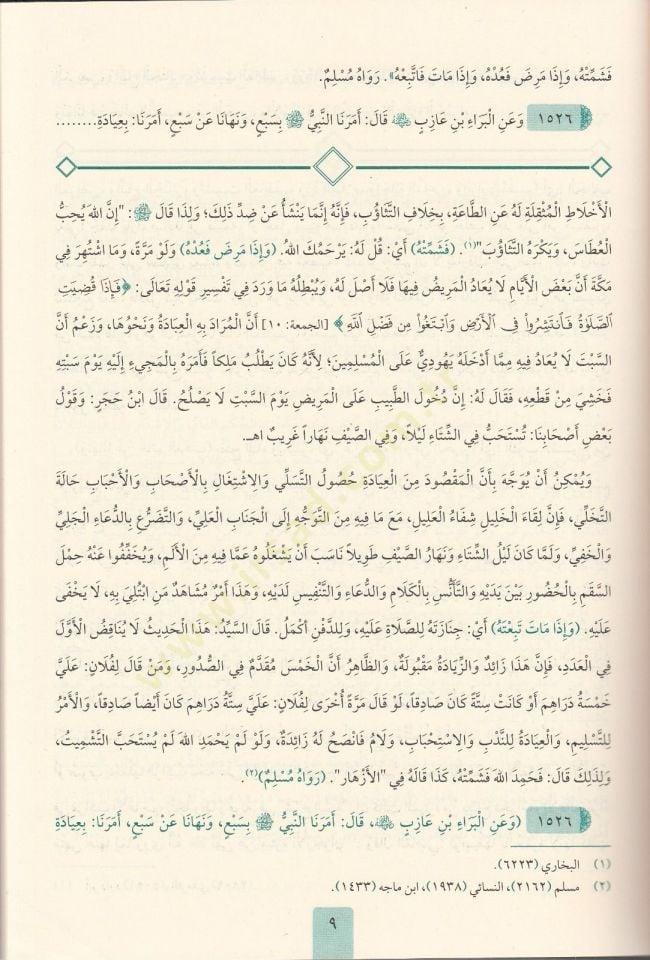 فَشَمِّتْهُ، وَإِذَا مَرِضَ فَعُدْهُ، وَإِذَا مَاتَ فَاتَّبِعْهُ». رَوَاهُ مُسْلِمٌ.
١٥٢٦ وَعَنِ الْبَرَاءِ بْنِ عَازِبٍ ﷺ قَالَ: أَمَرَنَا النَّبِيُّ ﷺ بِسَبْعٍ، وَنَهَانَا عَنْ سَبْعٍ، أَمَرَنَا: بِعِيَادَةِ........
الْأَخْلَاطِ الْمُثْقِلَةِ لَهُ عَنِ الطَّاعَةِ، بِخِلَافِ التَّثَاؤُبِ، فَإِنَّهُ إِنَّمَا يَنْشَأُ عَنْ ضِدِّ ذَلِكَ؛ وَلِذَا قَالَ ﷺ: "إِنَّ اللهَ يُحِبُّ
الْعُطَاسَ، وَيَكْرَهُ التَّثَاؤُبَ"(١). (فَشَمِّتْهُ) أَيْ: قُلْ لَهُ: يَرْحَمُكَ اللهُ. (وَإِذَا مَرِضَ فَعُدْهُ) وَلَوْ مَرَّةً، وَمَا اشْتُهِرَ فِي
مَكَّةَ أَنَّ بَعْضَ الْأَيَّامِ لَا يُعَادُ الْمَرِيضُ فِيهَا فَلَا أَصْلَ لَهُ، وَيُبْطِلُهُ مَا وَرَدَ فِي تَفْسِيرِ قَوْلِهِ تَعَالَى: ﴿فَإِذَا قُضِيَتِ
الصَّلَاةُ فَانْتَشِرُوا فِي الْأَرْضِ وَابْتَغُوا مِن فَضْلِ اللَّهِ﴾ [الجمعة: ١٠] أَنَّ الْمُرَادَ بِهِ الْعِيَادَةُ وَنَحْوُهَا، وَزَعْمُ أَنَّ
السَّبْتَ لَا يُعَادُ فِيهِ مِمَّا أَدْخَلَهُ يَهُودِيٌّ عَلَى الْمُسْلِمِينَ؛ لِأَنَّهُ كَانَ يَطْلُبُ مَلِكاً فَأَمَرَهُ بِالْمَجِيءِ إِلَيْهِ يَوْمَ سَبْتِهِ
فَخَشِيَ مِنْ قَطْعِهِ، فَقَالَ لَهُ: إِنَّ دُخُولَ الطَّبِيبِ عَلَى الْمَرِيضِ يَوْمَ السَّبْتِ لَا يَصْلُحُ. قَالَ ابْنُ حَجَرٍ: وَقَوْلُ
بَعْضِ أَصْحَابِنَا: تُسْتَحَبُّ فِي الشِّتَاءِ لَيْلاً، وَفِي الصَّيْفِ نَهَاراً غَرِيبٌ اهـ.
وَيُمْكِنُ أَنْ يُوَجَّهَ بِأَنَّ الْمَقْصُودَ مِنَ الْعِيَادَةِ حُصُولُ التَّسَلِّي وَالِاشْتِغَالِ بِالْأَصْحَابِ وَالْأَحْبَابِ حَالَةَ
التَّخَلِّي، فَإِنَّ لِقَاءَ الْخَلِيلِ شِفَاءُ الْعَلِيلِ، مَعَ مَا فِيهِ مِنَ التَّوَجُّهِ إِلَى الْجَنَابِ الْعَلِيِّ، وَالتَّضَرُّعِ بِالدُّعَاءِ الْجَلِيِّ
وَالْخَفِيِّ، وَلَمَّا كَانَ لَيْلُ الشِّتَاءِ وَنَهَارُ الصَّيْفِ طَوِيلاً نَاسَبَ أَنْ يَشْغَلُوهُ عَمَّا فِيهِ مِنَ الْأَلَمِ، وَيُخَفِّفُوا عَنْهُ حِمْلَ
السَّقَمِ بِالْحُضُورِ بَيْنَ يَدَيْهِ وَالتَّأَنُّسِ بِالْكَلَامِ وَالدُّعَاءِ وَالتَّنْفِيسِ لَدَيْهِ، وَهَذَا أَمْرٌ مُشَاهَدٌ مَنِ ابْتُلِيَ بِهِ، لَا يَخْفَى
عَلَيْهِ. (وَإِذَا مَاتَ تَبِعْتَهُ) أَيْ: جِنَازَتَهُ لِلصَّلَاةِ عَلَيْهِ، وَلِلدَّفْنِ أَكْمَلُ. قَالَ السَّيِّدُ: هَذَا الْحَدِيثُ لَا يُنَاقِضُ الْأَوَّلَ
فِي الْعَدَدِ، فَإِنَّ هَذَا زَائِدٌ وَالزِّيَادَةُ مَقْبُولَةٌ، وَالظَّاهِرُ أَنَّ الْخَمْسَ مُقَدَّمٌ فِي الصُّدُورِ، وَمَنْ قَالَ لِفُلَانٍ: عَلَيَّ
خَمْسَةُ دَرَاهِمَ أَوْ كَانَتْ سِتَّةً كَانَ صَادِقاً، لَوْ قَالَ مَرَّةً أُخْرَى لِفُلَانٍ: عَلَيَّ سِتَّةُ دَرَاهِمَ كَانَ أَيْضاً صَادِقاً، وَالْأَمْرُ
لِلتَّسْلِيمِ، وَالْعِيَادَةُ لِلنَّدْبِ وَالِاسْتِحْبَابِ، وَلَامُ فَانْصَحْ لَهُ زَائِدَةٌ، وَلَوْ لَمْ يَحْمَدِ اللهَ لَمْ يُسْتَحَبَّ التَّشْمِيتُ،
وَلِذَلِكَ قَالَ: فَحَمِدَ اللهَ فَشَمِّتْهُ، كَذَا قَالَهُ فِي "الْأَزْهَارِ". (رَوَاهُ مُسْلِمٌ)(٢).
١٥٢٦ (وَعَنِ الْبَرَاءِ بْنِ عَازِبٍ، قَالَ: أَمَرَنَا النَّبِيُّ ﷺ بِسَبْعٍ، وَنَهَانَا عَنْ سَبْعٍ، أَمَرَنَا: بِعِيَادَةِ
(١) البخاري (٦٢٢٣).
(٢) مسلم (٢١٦٢)، النسائي (١٩٣٨)، ابن ماجه (١٤٣٣).
٩